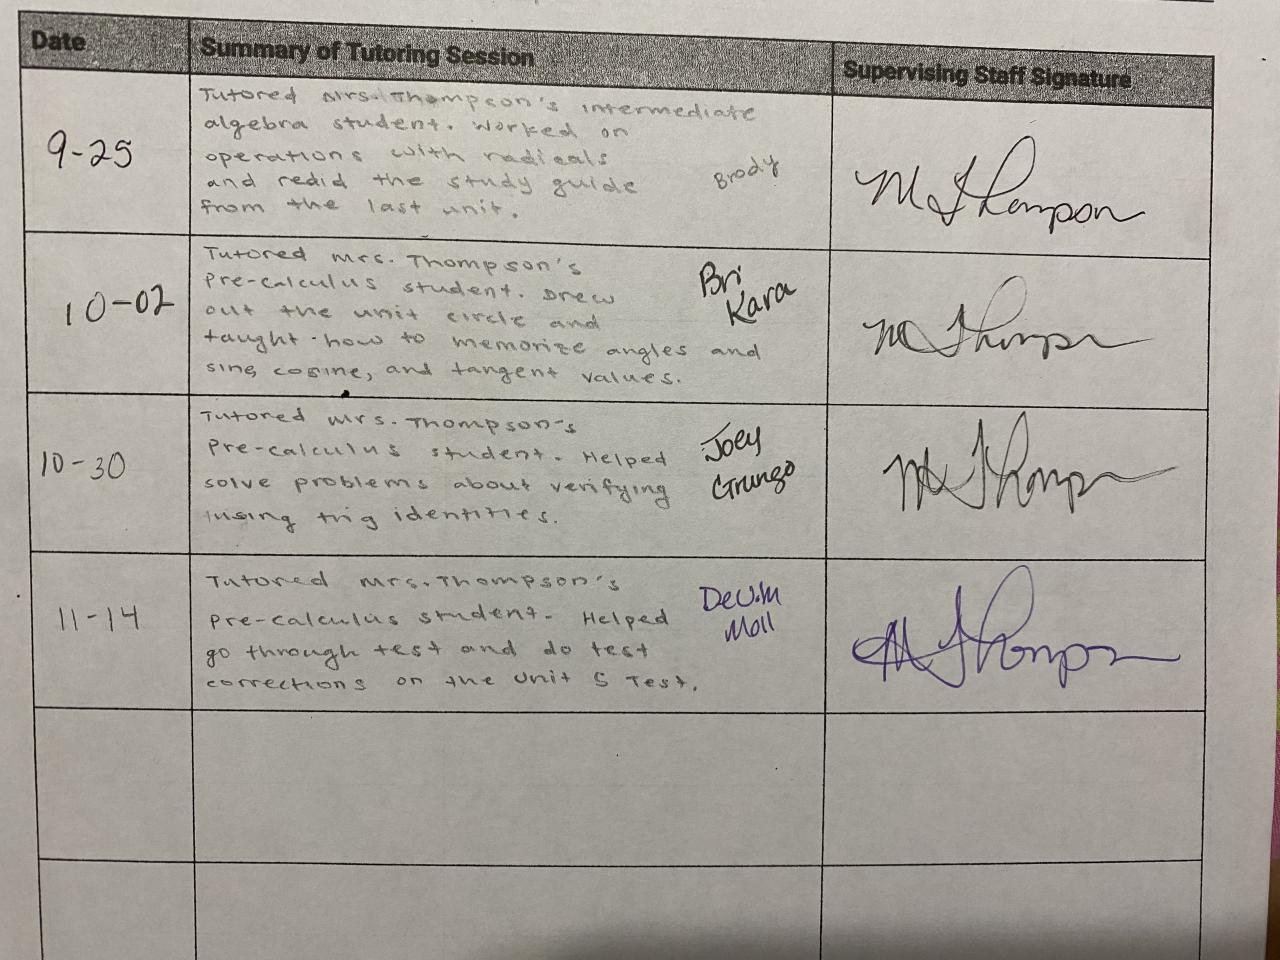 Date
Summary of Tutoring Session
Supervising Staff Signature
9-25
Tutored Mrs. Thompson's intermediate
algebra student. Worked on
operations with radicals
and redid the study guide
from the last unit.
Brody
M Thompson
10-02
Tutored Mrs. Thompson's
Pre-calculus student. Drew
out the unit circle and
taught how to memorize angles and
sine, cosine, and tangent values.
Bri
Kara
M Thompson
10-30
Tutored Mrs. Thompson's
Pre-calculus student. Helped
solve problems about verifying
using trig identities.
Joey
M Thompson
11-14
Tutored Mrs. Thompson's
Pre-calculus student. Helped
go through test and do test
corrections on the Unit 5 Test.
Moll
M Thompson